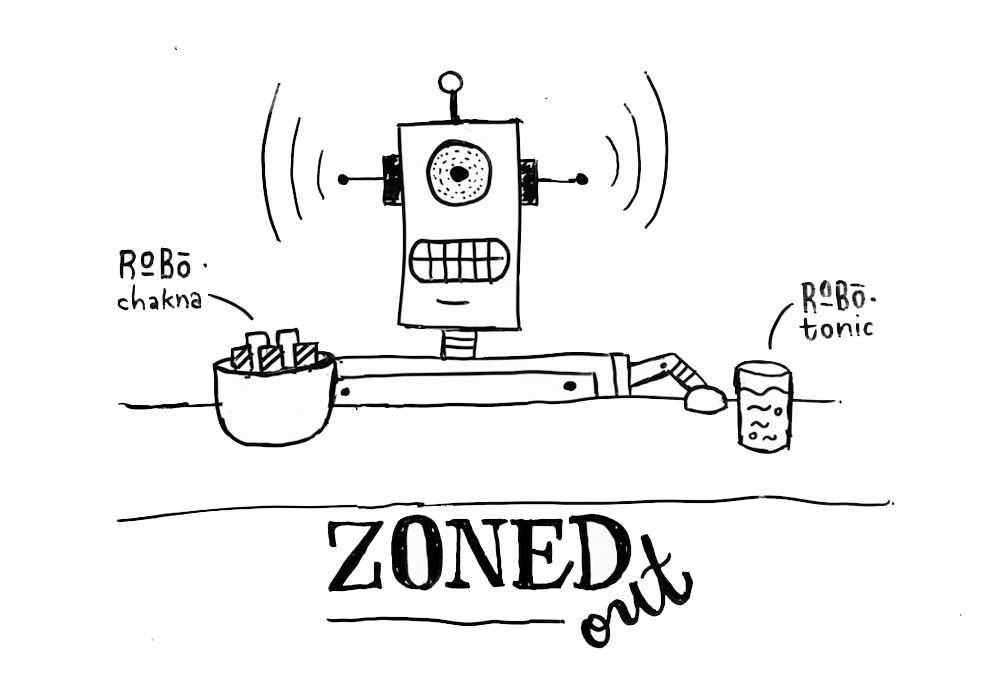 RoBō.
chakna
RoBō.
tonic
ZONED
out